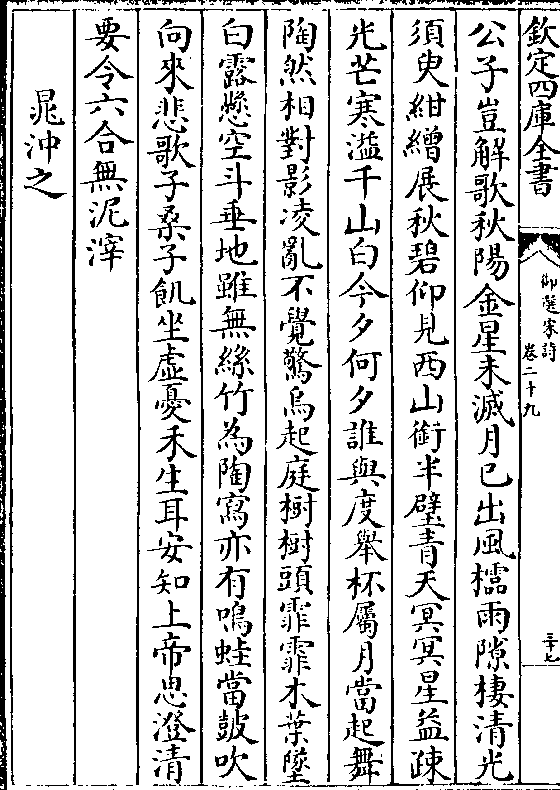 欽定四庫全書
御選宋詩
卷二十九
三十七
公子豈解歌秋陽金星未滅月已出風櫺雨隙棲清光
須臾紺繒展秋碧仰見西山銜半璧青天冥冥星益疎
光芒寒溢千山白今夕何夕誰與度舉杯屬月當起舞
陶然相對影凌亂不覺驚烏起庭樹樹頭霏霏木葉墜
白露懸空斗垂地雖無絲竹為陶寫亦有鳴蛙當鼓吹
向來悲歌子桑子飢坐虛憂禾生耳安知上帝思澄清
要令六合無泥滓
晁沖之